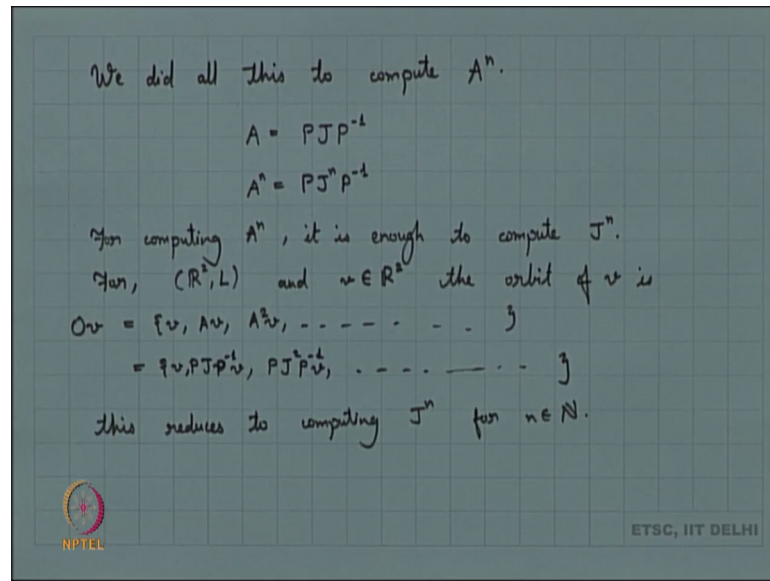 We did all this to compute Aⁿ.
A = PJP⁻¹
Aⁿ = PJⁿP⁻¹
For computing Aⁿ, it is enough to compute Jⁿ.
For, (R², L) and v ∈ R² the orbit of v is
Ov = {v, Av, A²v, - - - - - - - - }
= {v, PJP⁻¹v, PJ²P⁻¹v, - - - - - - - - - }
this reduces to computing Jⁿ for n ∈ N.
NPTEL
ETSC, IIT DELHI